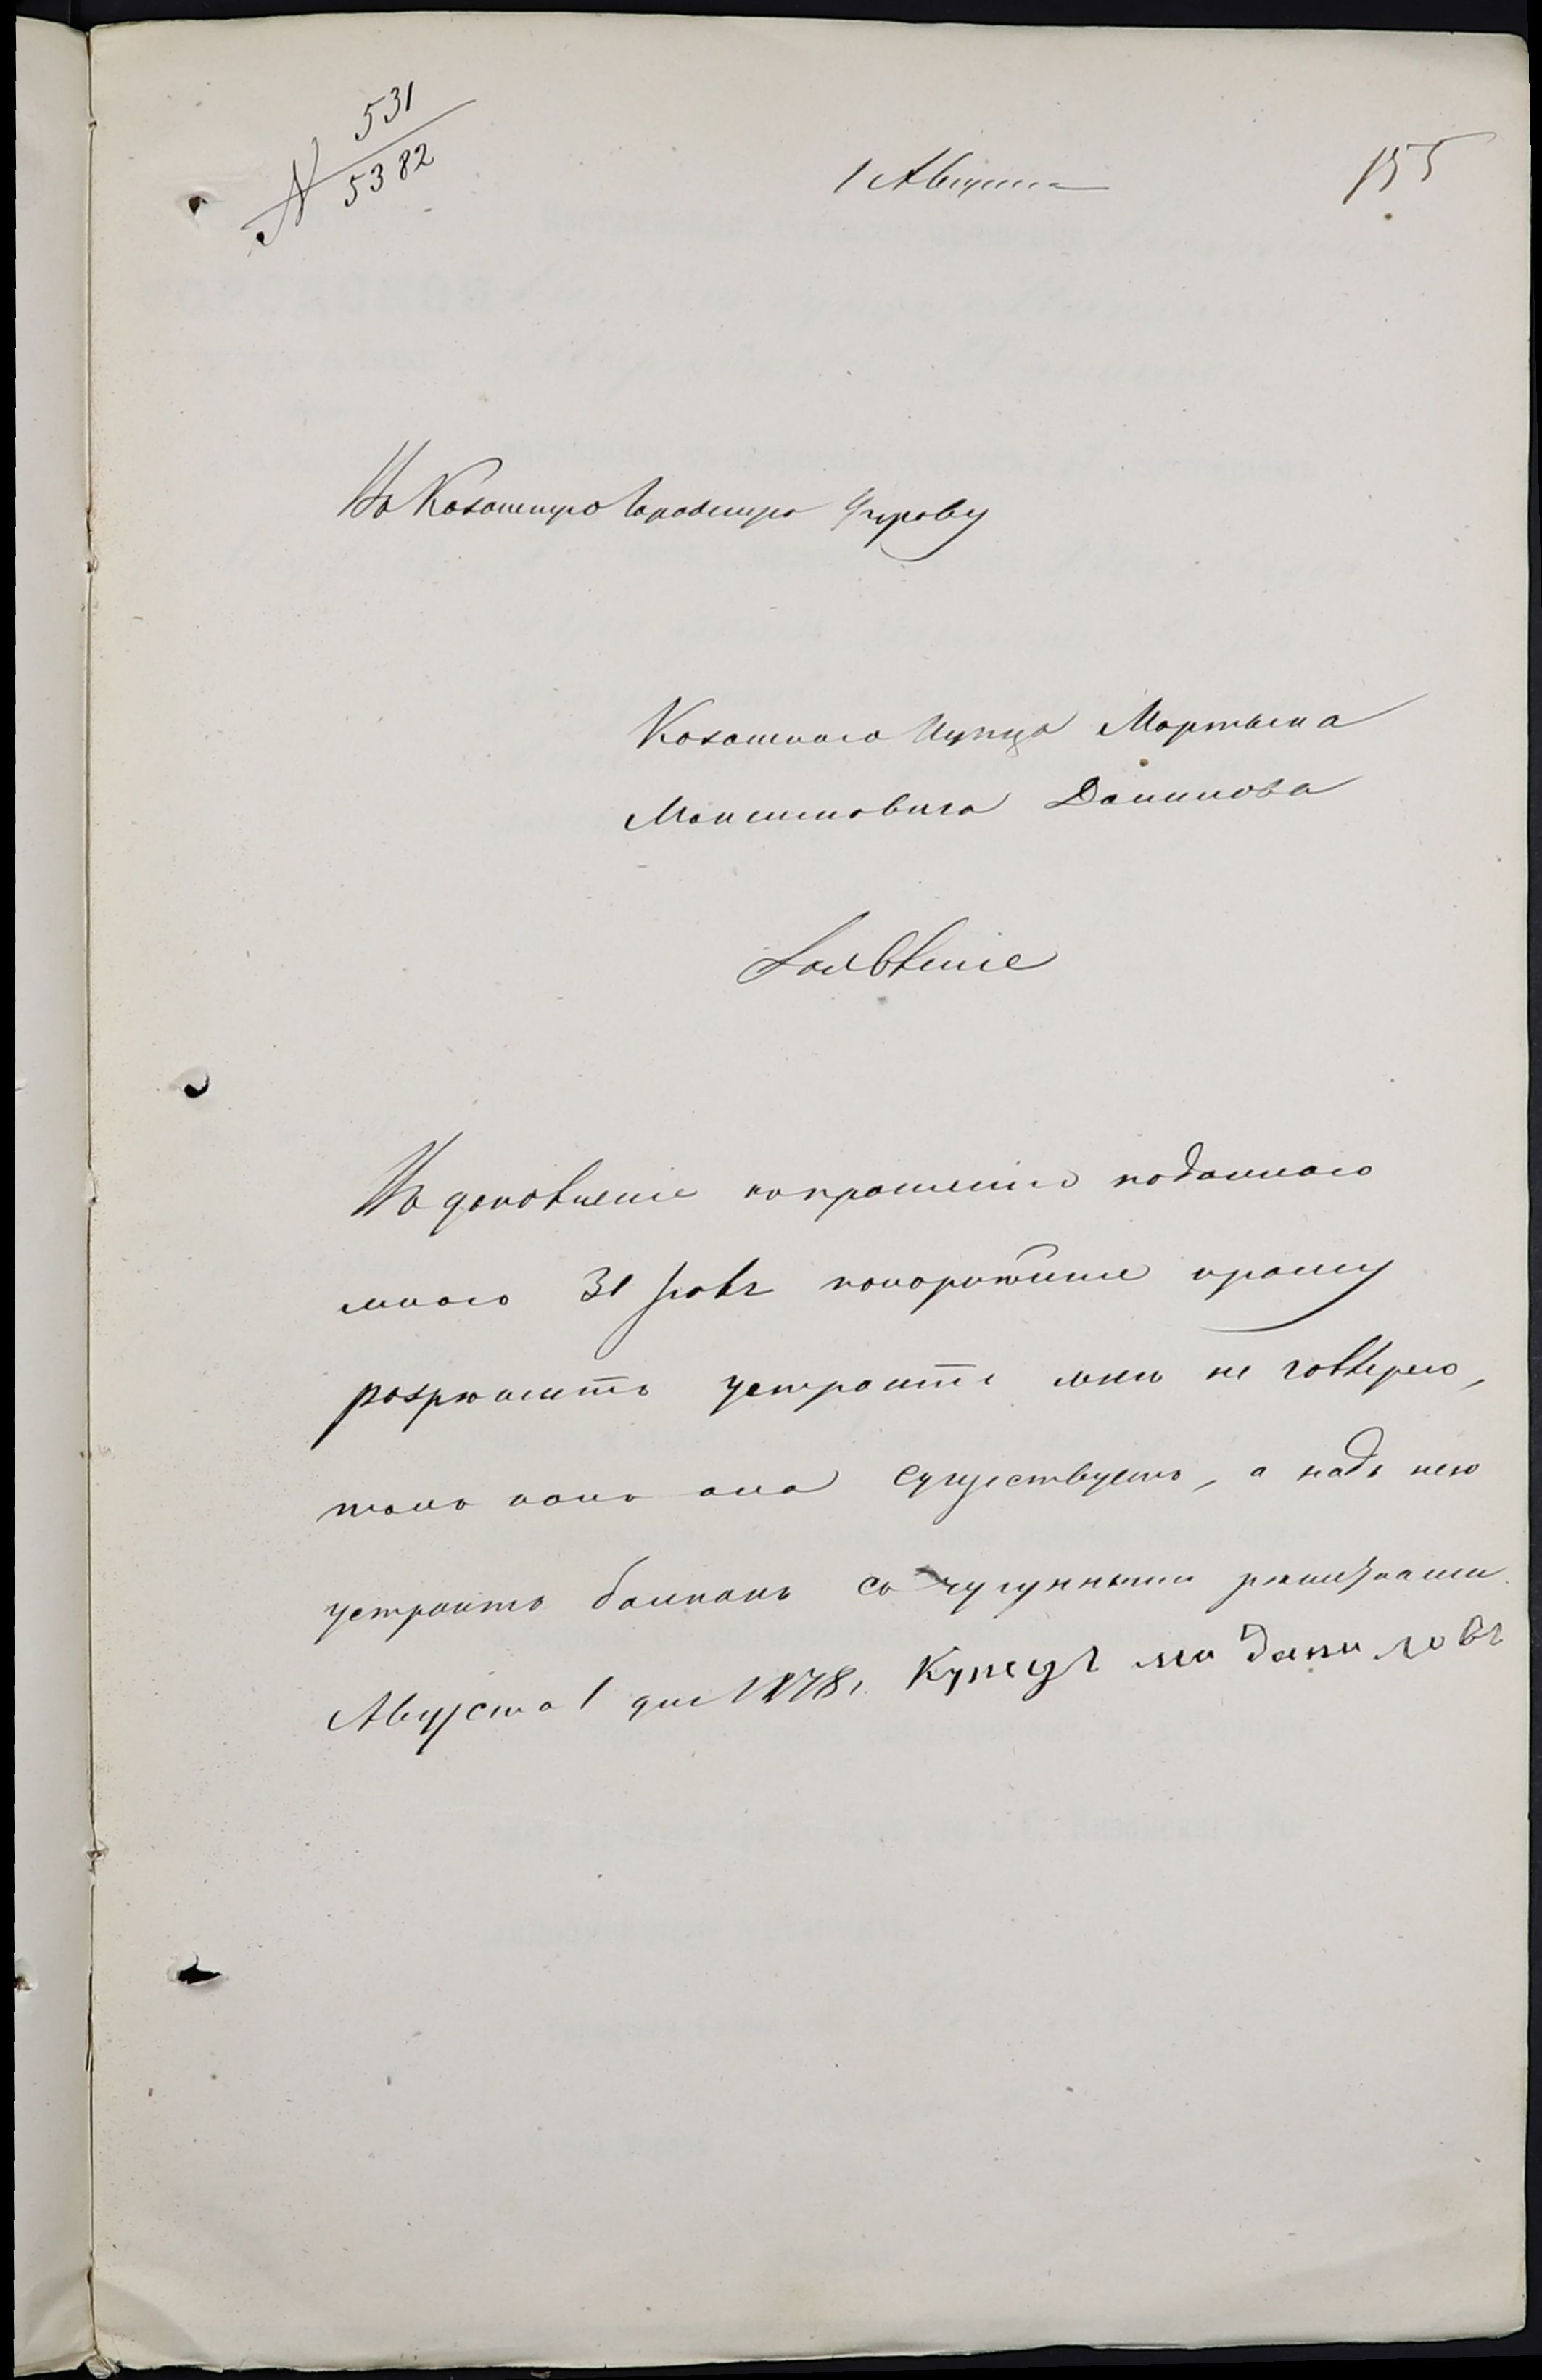 N 531
5382
1 Августа
155
Въ Казанскую Городскую Управу
Казанскаго Купца Мартына
Максимовича Данилова
Заявленіе
Въ дополненіе къ прошенію поданного
мною 31 Іюля покорнѣйше прошу
разрѣшить устроить мнѣ не галлерею,
такъ какъ она существуетъ, а надъ нею
устроить балконъ съ чугунными рѣшетками
Августа 1 дня 1878 г. Купецъ ма Даниловъ